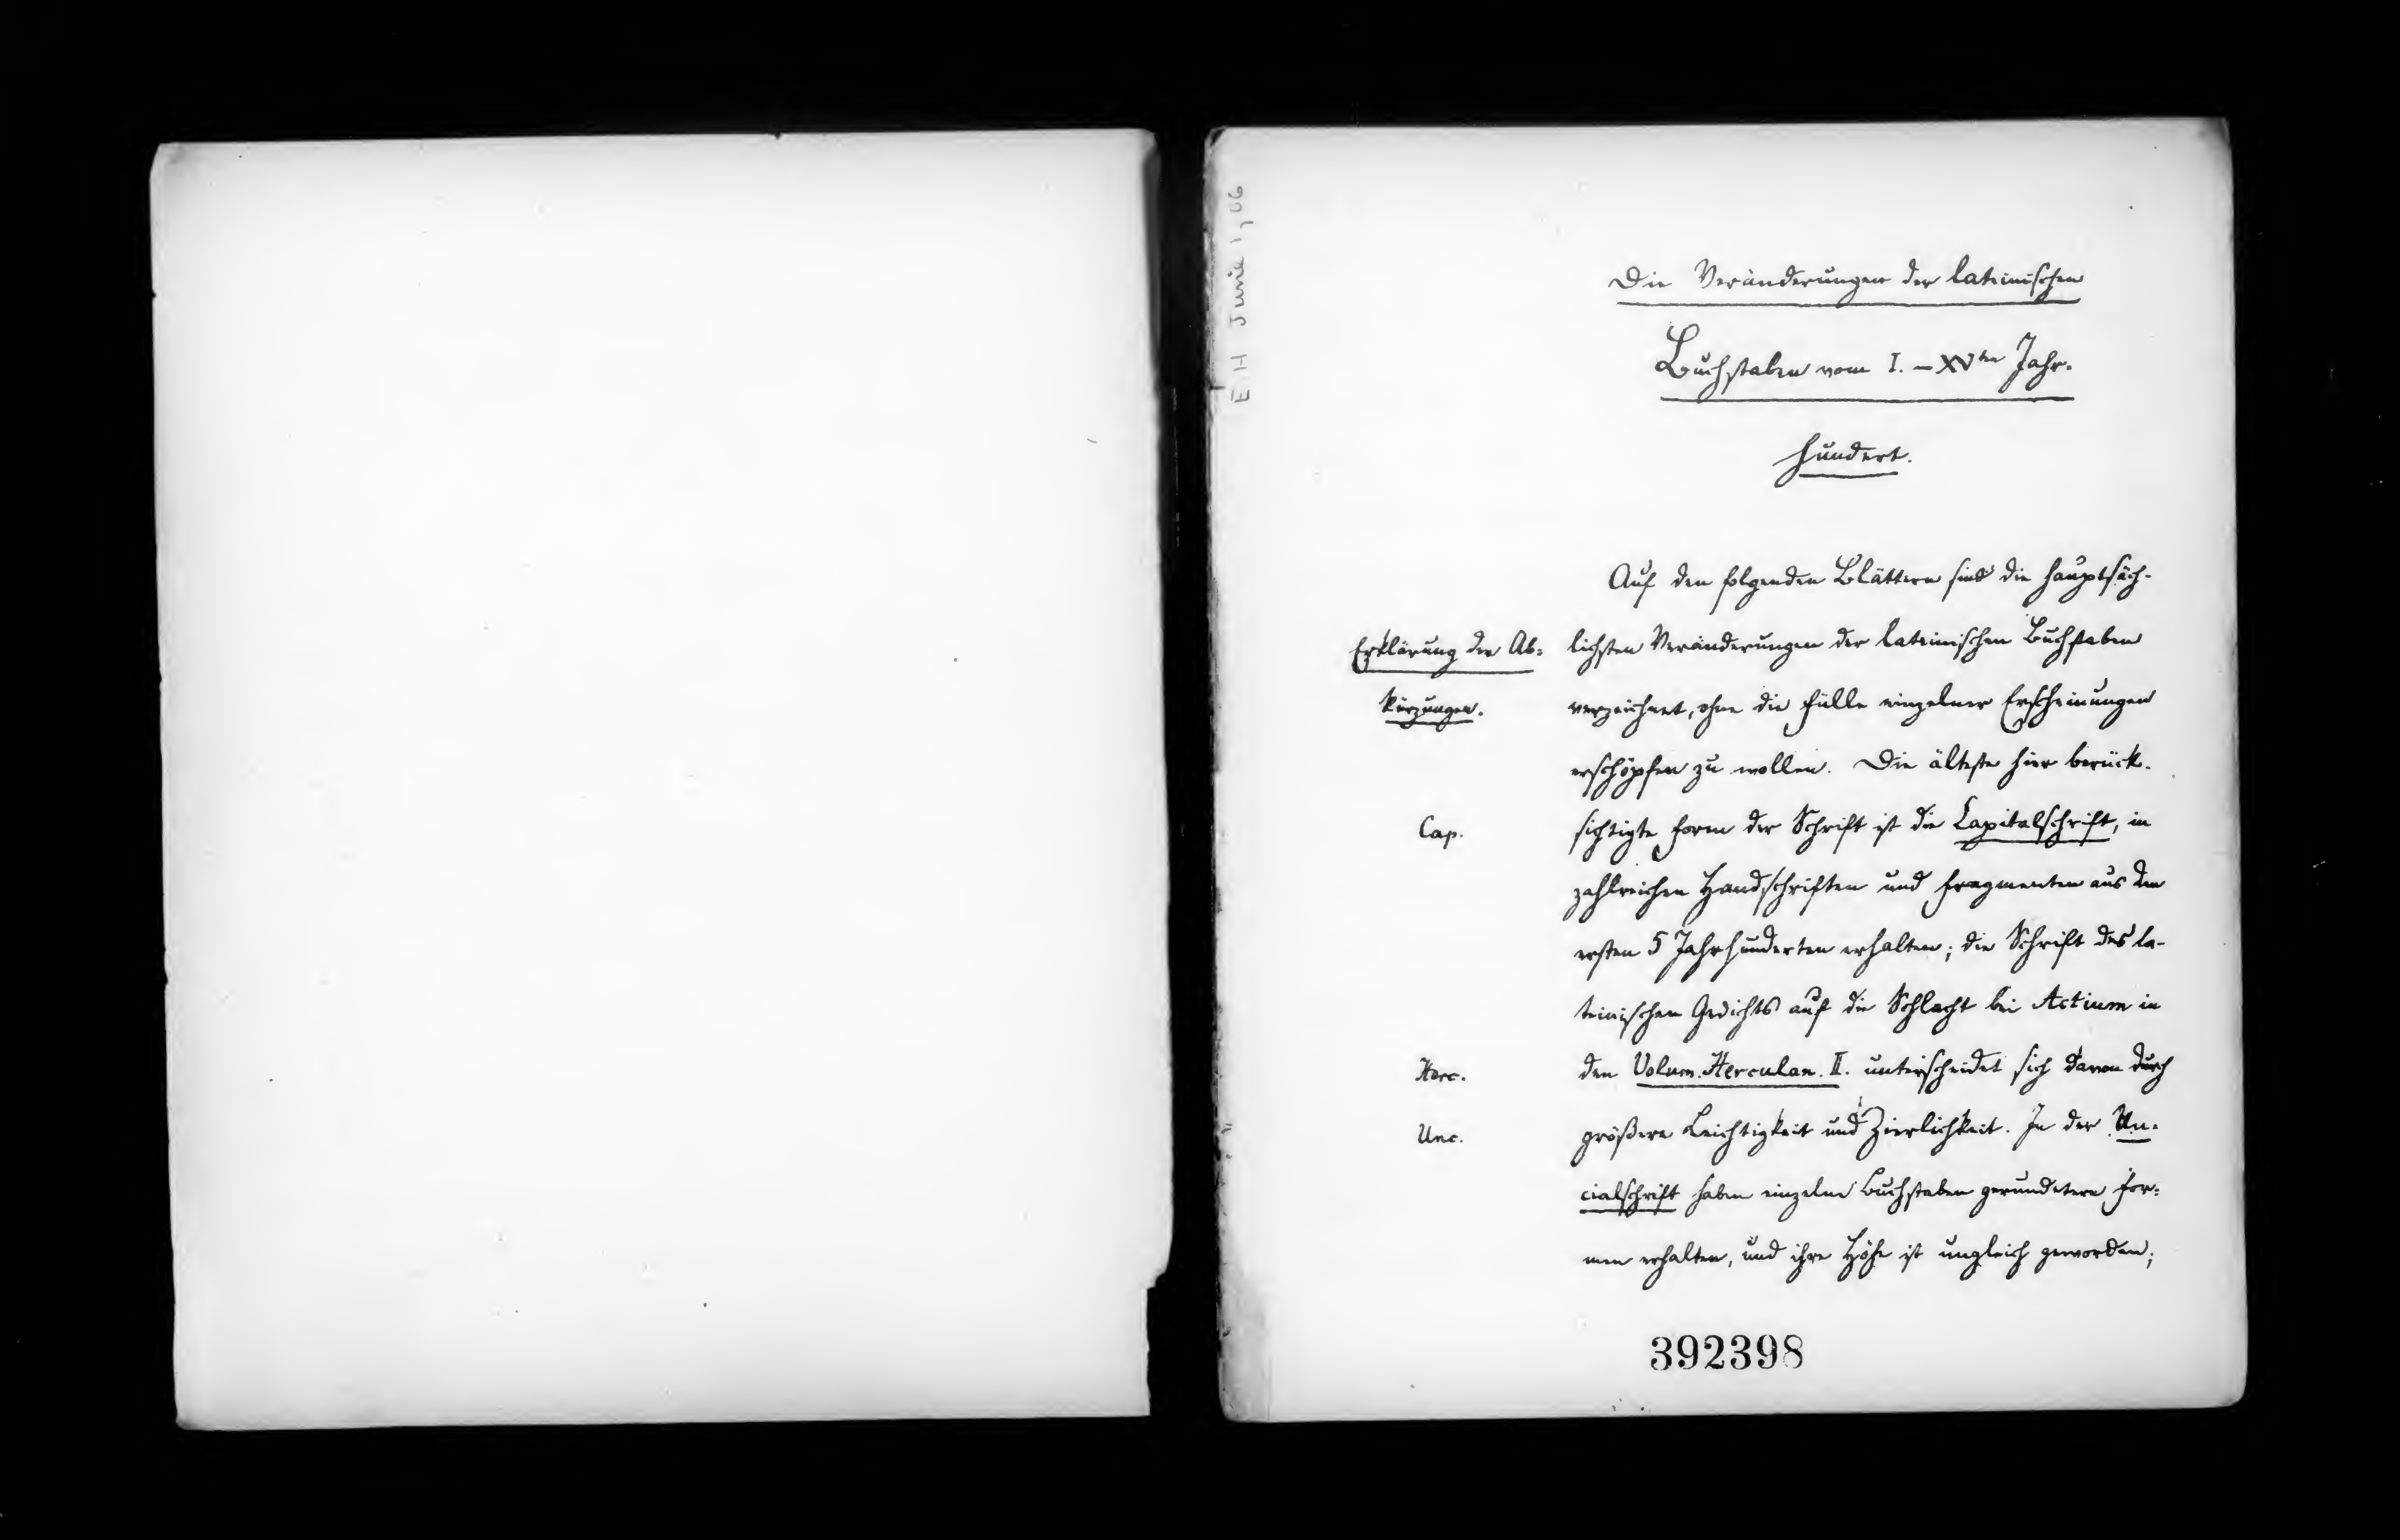 EH June 1, 06
Die Veränderungen der lateinischen
Buchstaben vom I. – XVten Jahr-
hundert.
Auf den folgenden Blättern sind die hauptsäch-
Erklärung der Ab- lichsten Veränderungen der lateinischen Buchstaben
kürzungen. verzeichnet, ohne die Fülle einzelner Erscheinungen
erschöpfen zu wollen. Die älteste hier berück-
Cap. sichtigte Form der Schrift ist die Capitalschrift, in
zahlreichen Handschriften und Fragmenten aus den
ersten 5 Jahrhunderten erhalten; die Schrift des la-
teinischen Gedichts auf die Schlacht bei Actium in
Herc. den Volum. Herculan. II. unterscheidet sich davon durch
Unc. größere Leichtigkeit und Zierlichkeit. In der Un-
cialschrift haben einzelne Buchstaben gerundetere For-
men erhalten, und ihre Höhe ist ungleich geworden;
392398